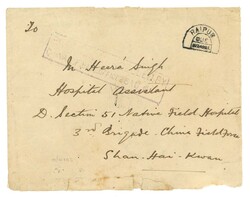 To
RAIPUR
Mr Heera Singh
Hospital Assistant
D. Section 51 Native Field Hospital
3rd Brigade. China Field Force
Shan-Hai-Kwan